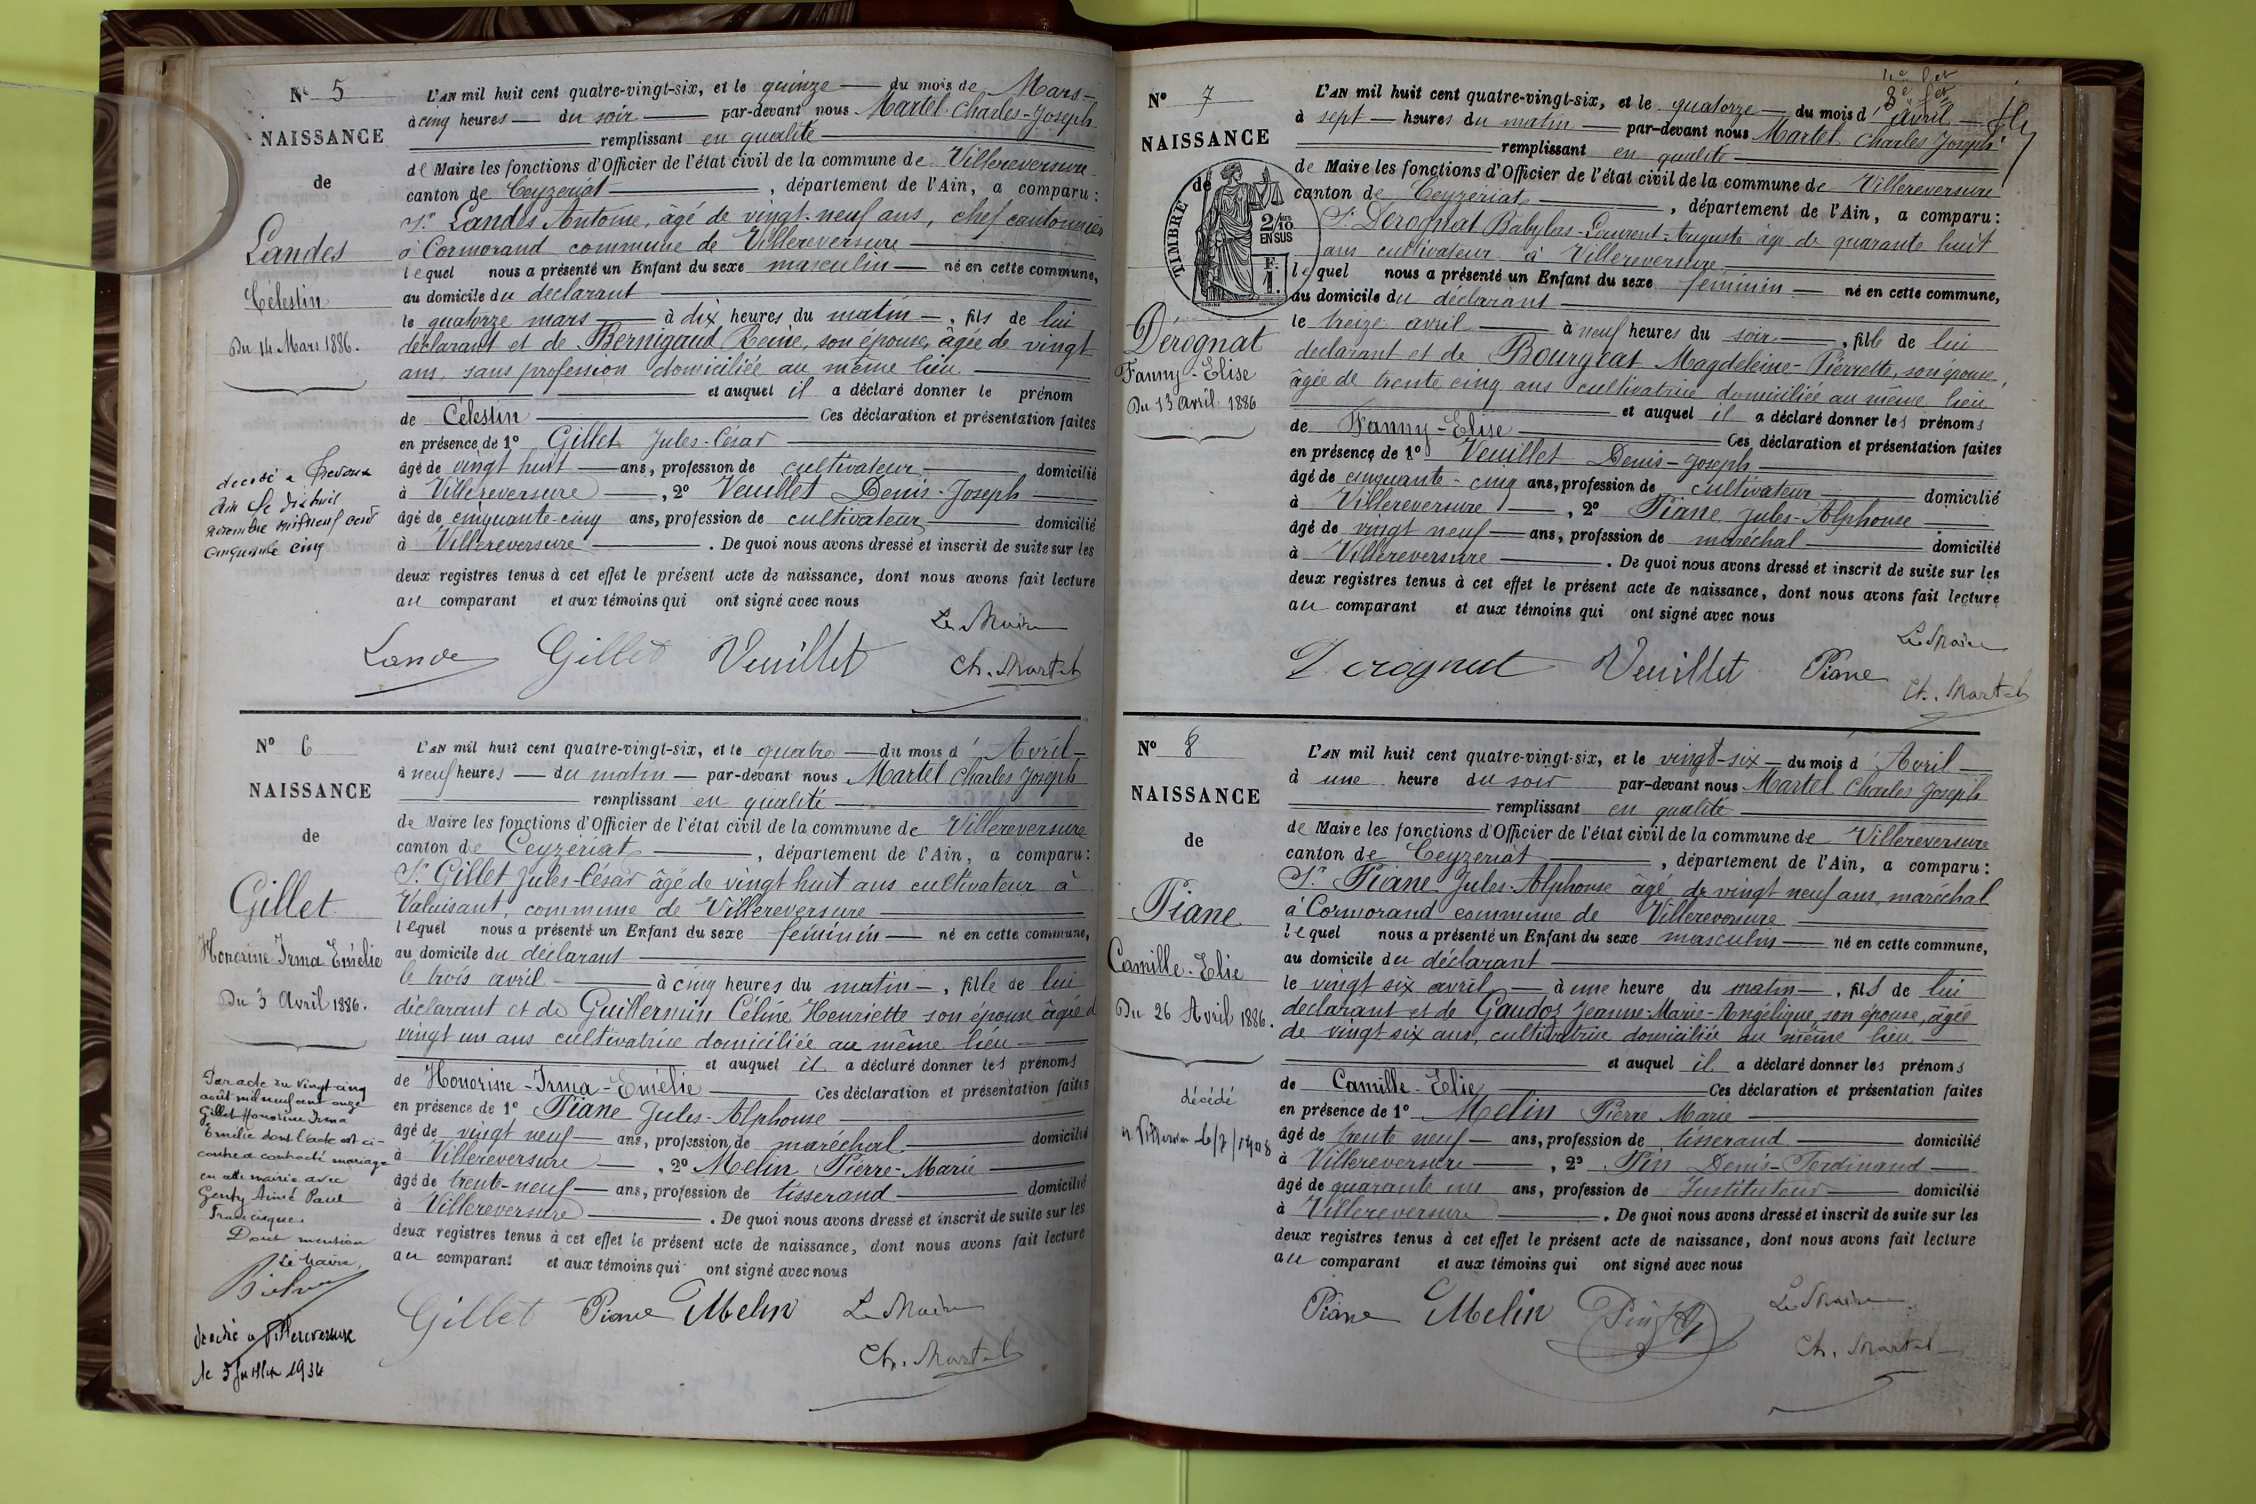 N° 5
NAISSANCE
de
Landes
Célestin
Du 14 Mars 1886.
décédé à Trévoux
Ain le dix huit
novembre mil neuf cent
cinquante cinq
L'AN mil huit cent quatre-vingt-six, et le quinze du mois de Mars
à cinq heures du soir par-devant nous Martel Charles-Joseph
remplissant en qualité
de Maire les fonctions d'Officier de l'état civil de la commune de Villereversure
canton de Ceyzeriat, département de l'Ain, a comparu:
Sr. Landes Antoine, âgé de vingt-neuf ans, chef cantonnier
à Cormorand commune de Villereversure
lequel nous a présenté un Enfant du sexe masculin né en cette commune,
au domicile du déclarant
le quatorze mars à dix heures du matin, fils de lui
déclarant et de Bernigaud Reine, son épouse, âgée de vingt
ans, sans profession domiciliée au même lieu
et auquel il a déclaré donner le prénom
de Célestin Ces déclaration et présentation faites
en présence de 1° Gillet Jules-César
âgé de vingt huit ans, profession de cultivateur domicilié
à Villereversure, 2° Veuillet Denis-Joseph
âgé de cinquante-cinq ans, profession de cultivateur domicilié
à Villereversure. De quoi nous avons dressé et inscrit de suite sur les
deux registres tenus à cet effet le présent acte de naissance, dont nous avons fait lecture
au comparant et aux témoins qui ont signé avec nous
Le Maire
Lande Gillet Veuillet Ch. Martel
N° 6
NAISSANCE
de
Gillet
Honorine Irma Emélie
Du 3 Avril 1886.
Par acte du vingt-cinq
août mil neuf cent onze
Gillet Honorine Irma
Emélie dont l'acte est ci-
contre a contracté mariage
en cette mairie avec
Genty Aimé Paul
Francisque.
Dont mention
Le Maire,
décédée à Villereversure
le 5 juillet 1934
L'AN mil huit cent quatre-vingt-six, et le quatre du mois d'Avril
à neuf heures du matin par-devant nous Martel Charles Joseph
remplissant en qualité
de Maire les fonctions d'Officier de l'état civil de la commune de Villereversure
canton de Ceyzeriat, département de l'Ain, a comparu:
Sr. Gillet Jules-César âgé de vingt huit ans cultivateur à
Valuisant, commune de Villereversure
lequel nous a présenté un Enfant du sexe féminin né en cette commune,
au domicile du déclarant
le trois avril à cinq heures du matin, fille de lui
déclarant et de Guillermin Céline Henriette son épouse âgée d
vingt un ans cultivatrice domiciliée au même lieu
et auquel il a déclaré donner les prénoms
de Honorine-Irma-Emélie Ces déclaration et présentation faites
en présence de 1° Piane Jules-Alphonse
âgé de vingt neuf ans, profession de maréchal domicilié
à Villereversure, 2° Melin Pierre-Marie
âgé de trente-neuf ans, profession de tisserand domicilié
à Villereversure. De quoi nous avons dressé et inscrit de suite sur les
deux registres tenus à cet effet le présent acte de naissance, dont nous avons fait lecture
au comparant et aux témoins qui ont signé avec nous
Gillet Piane Melin Le Maire
Ch. Martel
N° 7
NAISSANCE
de
TIMBRE
2/10
EN SUS
F.
1.
Dérognat
Fanny-Elise
Du 13 Avril 1886
L'AN mil huit cent quatre-vingt-six, et le quatorze du mois d'avril
à sept heures du matin par-devant nous Martel Charles Joseph
remplissant en qualité
de Maire les fonctions d'Officier de l'état civil de la commune de Villereversure
canton de Ceyzériat, département de l'Ain, a comparu:
Sr. Dérognat Babylas-Laurent-Auguste âgé de quarante huit
ans cultivateur à Villereversure
lequel nous a présenté un Enfant du sexe féminin né en cette commune,
au domicile du déclarant
le treize avril à neuf heures du soir, fille de lui
déclarant et de Bourgeat Magdeleine-Pierrette, son épouse,
âgée de trente cinq ans cultivatrice domiciliée au même lieu
et auquel il a déclaré donner les prénoms
de Fanny-Elise Ces déclaration et présentation faites
en présence de 1° Veuillet Denis-Joseph
âgé de cinquante-cinq ans, profession de cultivateur domicilié
à Villereversure, 2° Piane Jules-Alphonse
âgé de vingt neuf ans, profession de maréchal domicilié
à Villereversure. De quoi nous avons dressé et inscrit de suite sur les
deux registres tenus à cet effet le présent acte de naissance, dont nous avons fait lecture
au comparant et aux témoins qui ont signé avec nous
Le Maire
Derognat Veuillet Piane Ch. Martel
N° 8
NAISSANCE
de
Piane
Camille-Elie
Du 26 Avril 1886.
décédé
L'AN mil huit cent quatre-vingt-six, et le vingt-six du mois d'Avril
à une heure du soir par-devant nous Martel Charles Joseph
remplissant en qualité
de Maire les fonctions d'Officier de l'état civil de la commune de Villereversure
canton de Ceyzeriat, département de l'Ain, a comparu:
Sr. Piane Jules-Alphonse âgé de vingt neuf ans, maréchal
à Cormorand commune de Villereversure
lequel nous a présenté un Enfant du sexe masculin né en cette commune,
au domicile du déclarant
le vingt six avril à une heure du matin, fils de lui
déclarant et de Gaudoz Jeanne-Marie-Angélique, son épouse, âgée
de vingt six ans, cultivatrice domiciliée au même lieu
et auquel il a déclaré donner les prénoms
de Camille-Elie Ces déclaration et présentation faites
en présence de 1° Melin Pierre Marie
âgé de trente neuf ans, profession de tisserand domicilié
à Villereversure, 2° Pin Denis-Ferdinand
âgé de quarante un ans, profession de Instituteur domicilié
à Villereversure. De quoi nous avons dressé et inscrit de suite sur les
deux registres tenus à cet effet le présent acte de naissance, dont nous avons fait lecture
au comparant et aux témoins qui ont signé avec nous
Piane Melin Pin Le Maire
Ch. Martel